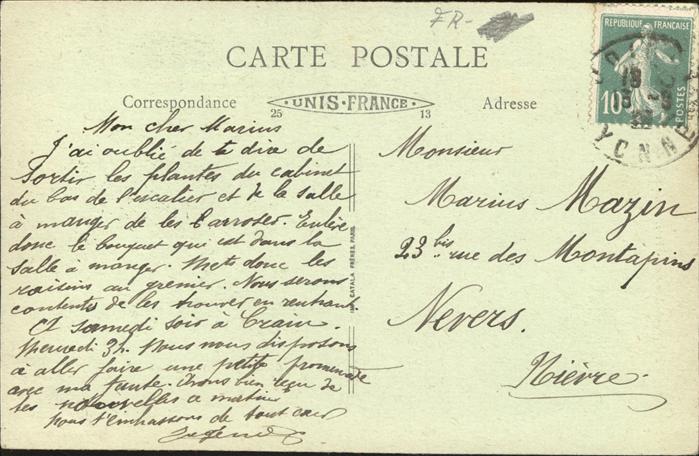 FR-
CARTE POSTALE
Correspondance
25 UNIS-FRANCE 13
Adresse
RÉPUBLIQUE FRANÇAISE
10c
POSTES
Mon cher Marius
J'ai oublié de te dire de
sortir les plantes du cabinet
du bas de l'escalier et de la salle
à manger de les l'arroser. Enlève
donc le bouquet qui est dans la
salle à manger. Mets donc les
raisins au grenier. Nous serons
contents de les trouver en rentrant
samedi soir à
Mercredi 3h. Nous nous disposons
à aller faire une petite promenade
avec ma tante. Avons bien reçu de
tes nouvelles ce matin
nous t'embrassons de tout cœur
IMP. CATALA FRÈRES, PARIS
Monsieur
Marius Mazin
23 bis rue des Montapins
Nevers.
Nièvre.